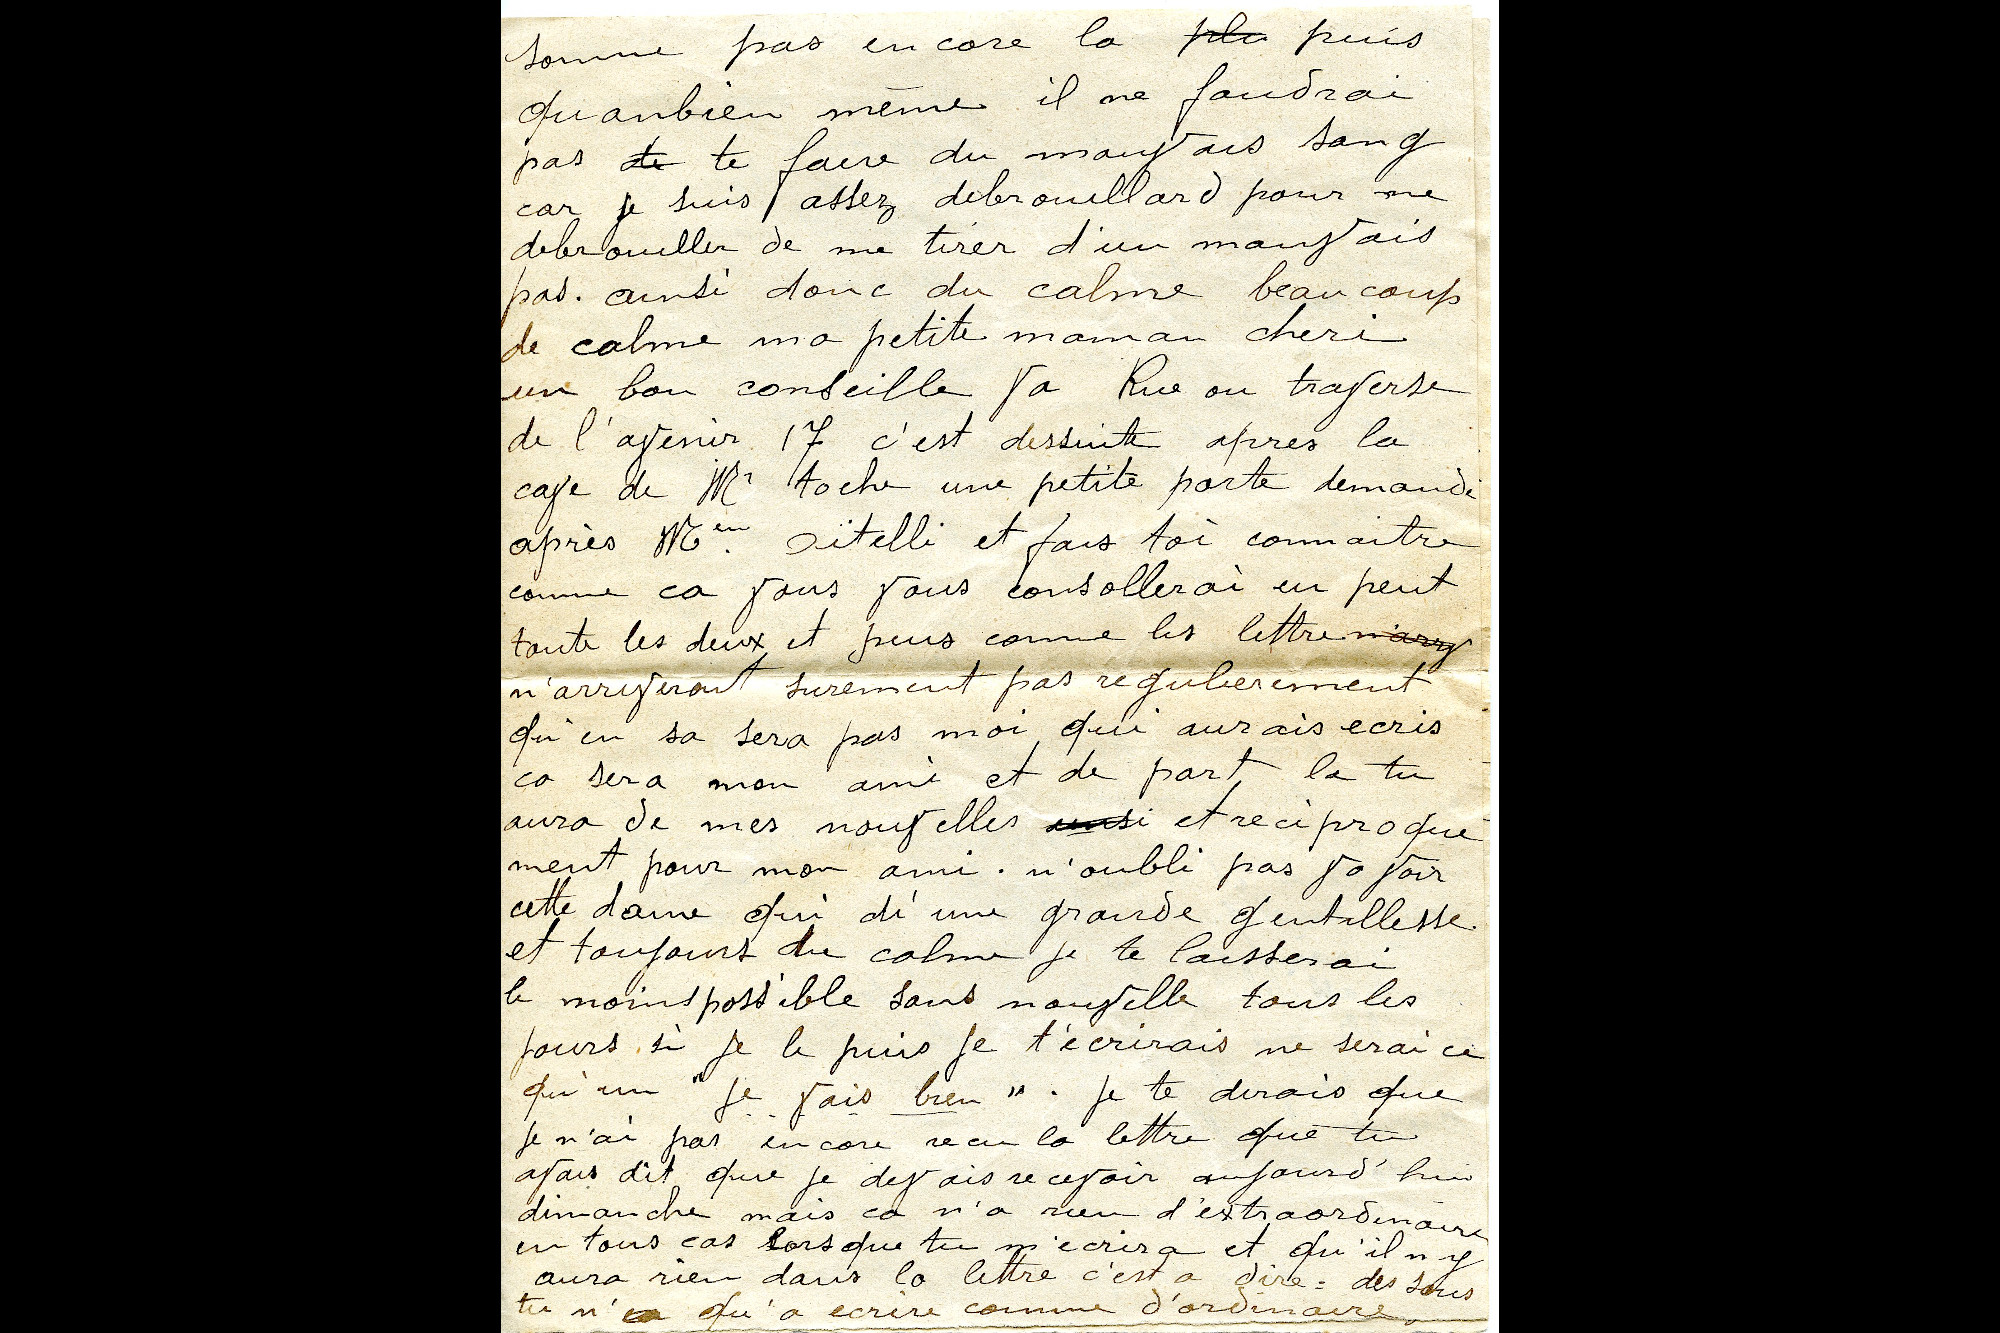 somme pas encore la pla puis
quanbien même il ne faudrai
pas de te faire du mauvais sang
car je suis assez debrouillard pour me
debrouiller de me tirer d'un mauvais
pas. ainsi donc du calme beaucoup
de calme ma petite maman cheri
un bon conseille va Rue ou traverse
de l'avenir 17 c'est dessuite apres la
cave de Mr toche une petite porte demande
après Mem. Ditelli et fais toi connaitre
comme ca vous vous consollerai en peut
toute les deux et puis comme les lettre n'arrv
n'arriveront surement pas regulierement
qu'en sa sera pas moi qui aurais ecris
ca sera mon ami et de part la tu
aura de mes nouvelles ainsi et reciproque
ment pour mon ami. n'oubli pas va voir
cette dame qui di une grande gentillesse.
et toujours du calme je te laisserai
le moins possible sans nouvelle tous les
jours si je le puis je t'ecrirais ne serai ce
qu'un "je vais bien". je te dirais que
je n'ai pas encore recu la lettre que tu
avais dit que je devais recevoir aujourd'hui
dimanche mais ca n'a rien d'extraordinaire
en tous cas lorsque tu m'ecrira et qu'il n y
aura rien dans la lettre c'est a dire = des sous
tu n'a qu'a ecrire comme d'ordinaire